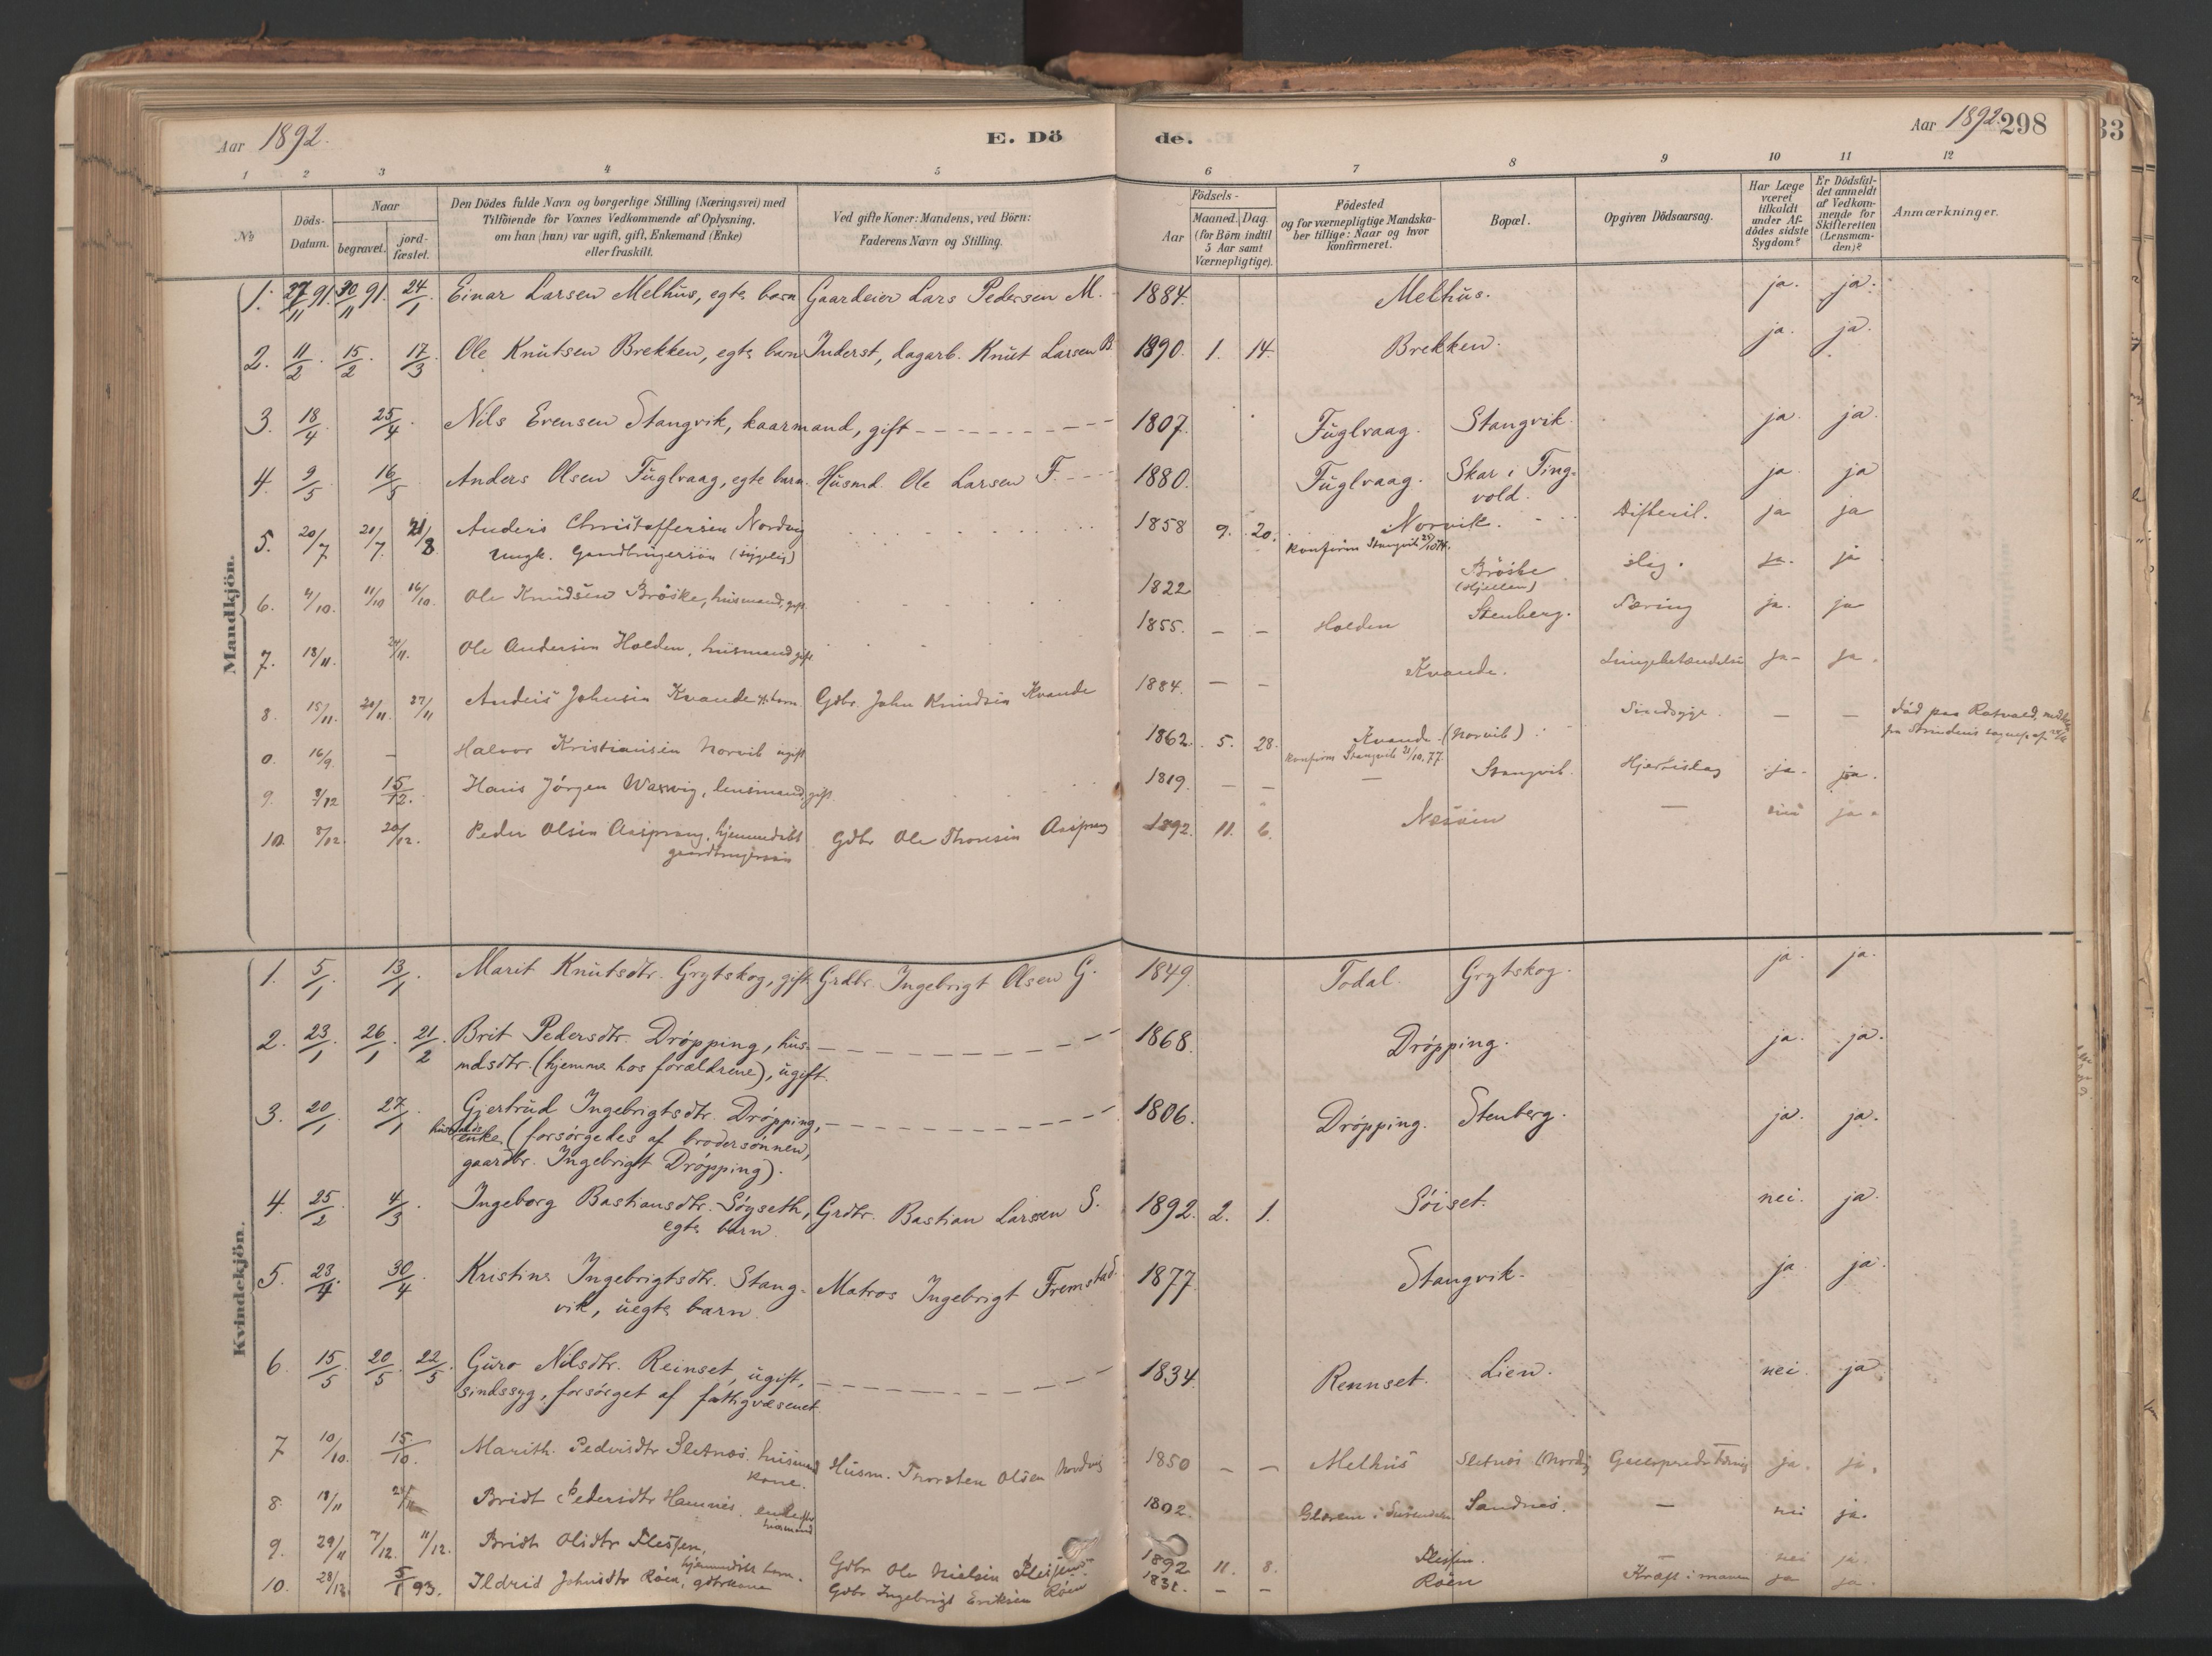 Aar 1892.
E. Dö
de.
Aar 1892. 298
33
1 2 3 4 5 6 7 8 9 10 11 12
No
Döds-Datum.
Naar
begravet.
jord-fæstet.
Den Dödes fulde Navn og borgerlige Stilling (Næringsvei) med
Tilföiende for Voxnes Vedkommende af Oplysning,
om han (hun) var ugift, gift, Enkemand (Enke)
eller fraskilt.
Ved gifte Koner: Mandens, ved Börn:
Faderens Navn og Stilling.
Födsels-
Aar
Maaned. Dag.
(for Börn indtil
5 Aar samt
Værnepligtige).
Födested
og for værnepligtige Mandska-
ber tillige: Naar og hvor
konfirmeret.
Bopæl.
Opgiven Dödsaarsag.
Har Læge
været
tilkaldt
under Af-
dödes sidste
Sygdom?
Er Dödsfal-
det anmeldt
af Vedkom-
mende for
Skifteretten
(Lensman-
den)?
Anmærkninger.
Mandkjön.
1. 27/11 91. 30/11 91. 24/1. Einar Larsen Melhus, egte barn Gaardeier Lars Pedersen M. 1884. Melhus. ja. ja.
2. 11/2. 15/2. 17/3 Ole Knutsen Brekken, egte barn Inderst, dagarb. Knut Larsen B. 1890. 1. 14. Brekken. ja. ja.
3. 18/4. 25/4. Nils Evensen Stangvik, kaarmand, gift 1807. Fuglvaag. Stangvik. ja. ja.
4. 9/5. 16/5 Anders Olsen Fuglvaag, egte barn. Husmd. Ole Larsen F. 1880. Fuglvaag. Skar i Ting-
vold. ja. ja
5. 20/7 21/7. 21/8 Anders Christoffersen Nordvig 1858 9. 20. Norvik. Difterit. ja ja
ungk. Gaardbrugersøn (sygelig) konfirm Stangvik
6. 4/10. 11/10 16/10. Ole Knudsen Brøske, husmand, gift. 1822 Brøske
(Hjellen) slag. ja. ja
7. 18/11. 24/11. Ole Andersen Holden, husmand gift 1855. — — Holden Stenberg. Tæring ja. ja
8. 15/11. 20/11. 27/11 Anders Johnsen Kvande, barn Gdbr. John Knudsen Kvande 1884. — — Kvande. Lungebetændelse ja ja.
0. 16/9. — Halvor Kristiansen Norvik ugift 1862. 5. 28. Kvande (Norvik) Sindsyge. — — død paa Rotvold,
konfirm Stangvik 21/10, 77.
9. 8/12 15/12. Hans Jörgen Waswig, lensmand, gift 1819. — — — Stangvik. Hjerteslag ja. ja.
10. 8/12. 20/12. Peder Olsen Aasprang, hjemmedøbt Gdbr Ole Thoresen Aasprang 1892. 11. 6. Næsøien — nei ja.
gaardbrugersøn
Kvindekjön.
1. 5/1. 13/1. Marit Knutsdtr. Grytskog, gift Grdbr. Ingebrigt Olsen G. 1849. Todal. Grytskog. ja. ja.
2. 23/1. 26/1. 21/2. Brit Pedersdtr. Dröpping, hus- 1868. Dröpping. ja. ja.
mdsdtr. (hjemme hos forældrene), ugift.
3. 20/1. 27/1. Gjertrud Ingebrigtsdtr. Dröpping, 1806. Dröpping. Stenberg. ja. ja.
husmands enke (forsörgedes af brodersönnen,
gaardbr. Ingebrigt Dröpping).
4. 25/2 4/3. Ingeborg Bastiansdtr. Söyseth, Grdbr. Bastian Larsen S. 1892. 2. 1. Söiset. nei. ja.
egte barn.
5. 23/4. 30/4. Kristine Ingebrigtsdtr. Stang- Matros Ingebrigt Fremstad. 1877. Stangvik. ja ja.
vik, uegte barn.
6. 15/5. 20/5. 22/5. Guro Nilsdtr. Reinset, ugift, 1834. Rennset. Lien. nei. ja
sindssyg, forsörget af fattigvæsenet.
7 10/10. 15/10. Marith. Pedersdtr Sletnes. husmand Husm. Thorsten Olsen Nordvig 1850 — — Melhus Sletnes (Nordvig) ja. ja.
kone.
8. 18/11 Bridt Pedersdtr Hamnes. enke efter 1802. Sandnes. — nei ja.
husmand
9. 29/11 7/12. 11/12. Bridt Olsdtr Flessen, Gdbr Ole Nielsen Flessen 1892 11. 8. Flessen. nei ja.
hjemmedøbt barn.
10. 28/12. 5/1 93. Ildrid Johnsdtr Røen, gdbrkone Gdbr Ingebrigt Eriksen Røen 1831. — — Røen Kræft i maven ja ja.